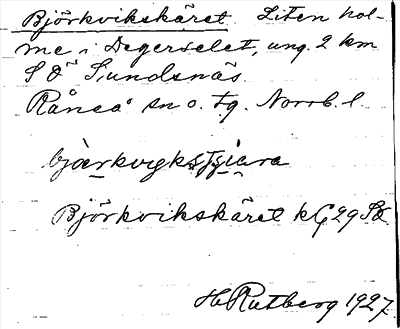 Björkvikskäret. Liten hol-
me i Degerselet, ung. 2 km
S Ö Sundsnäs.
Råneå sn o. tg. Norrb. l.
Björkvikskäret kG 29 SÖ
H Rutberg 1927.